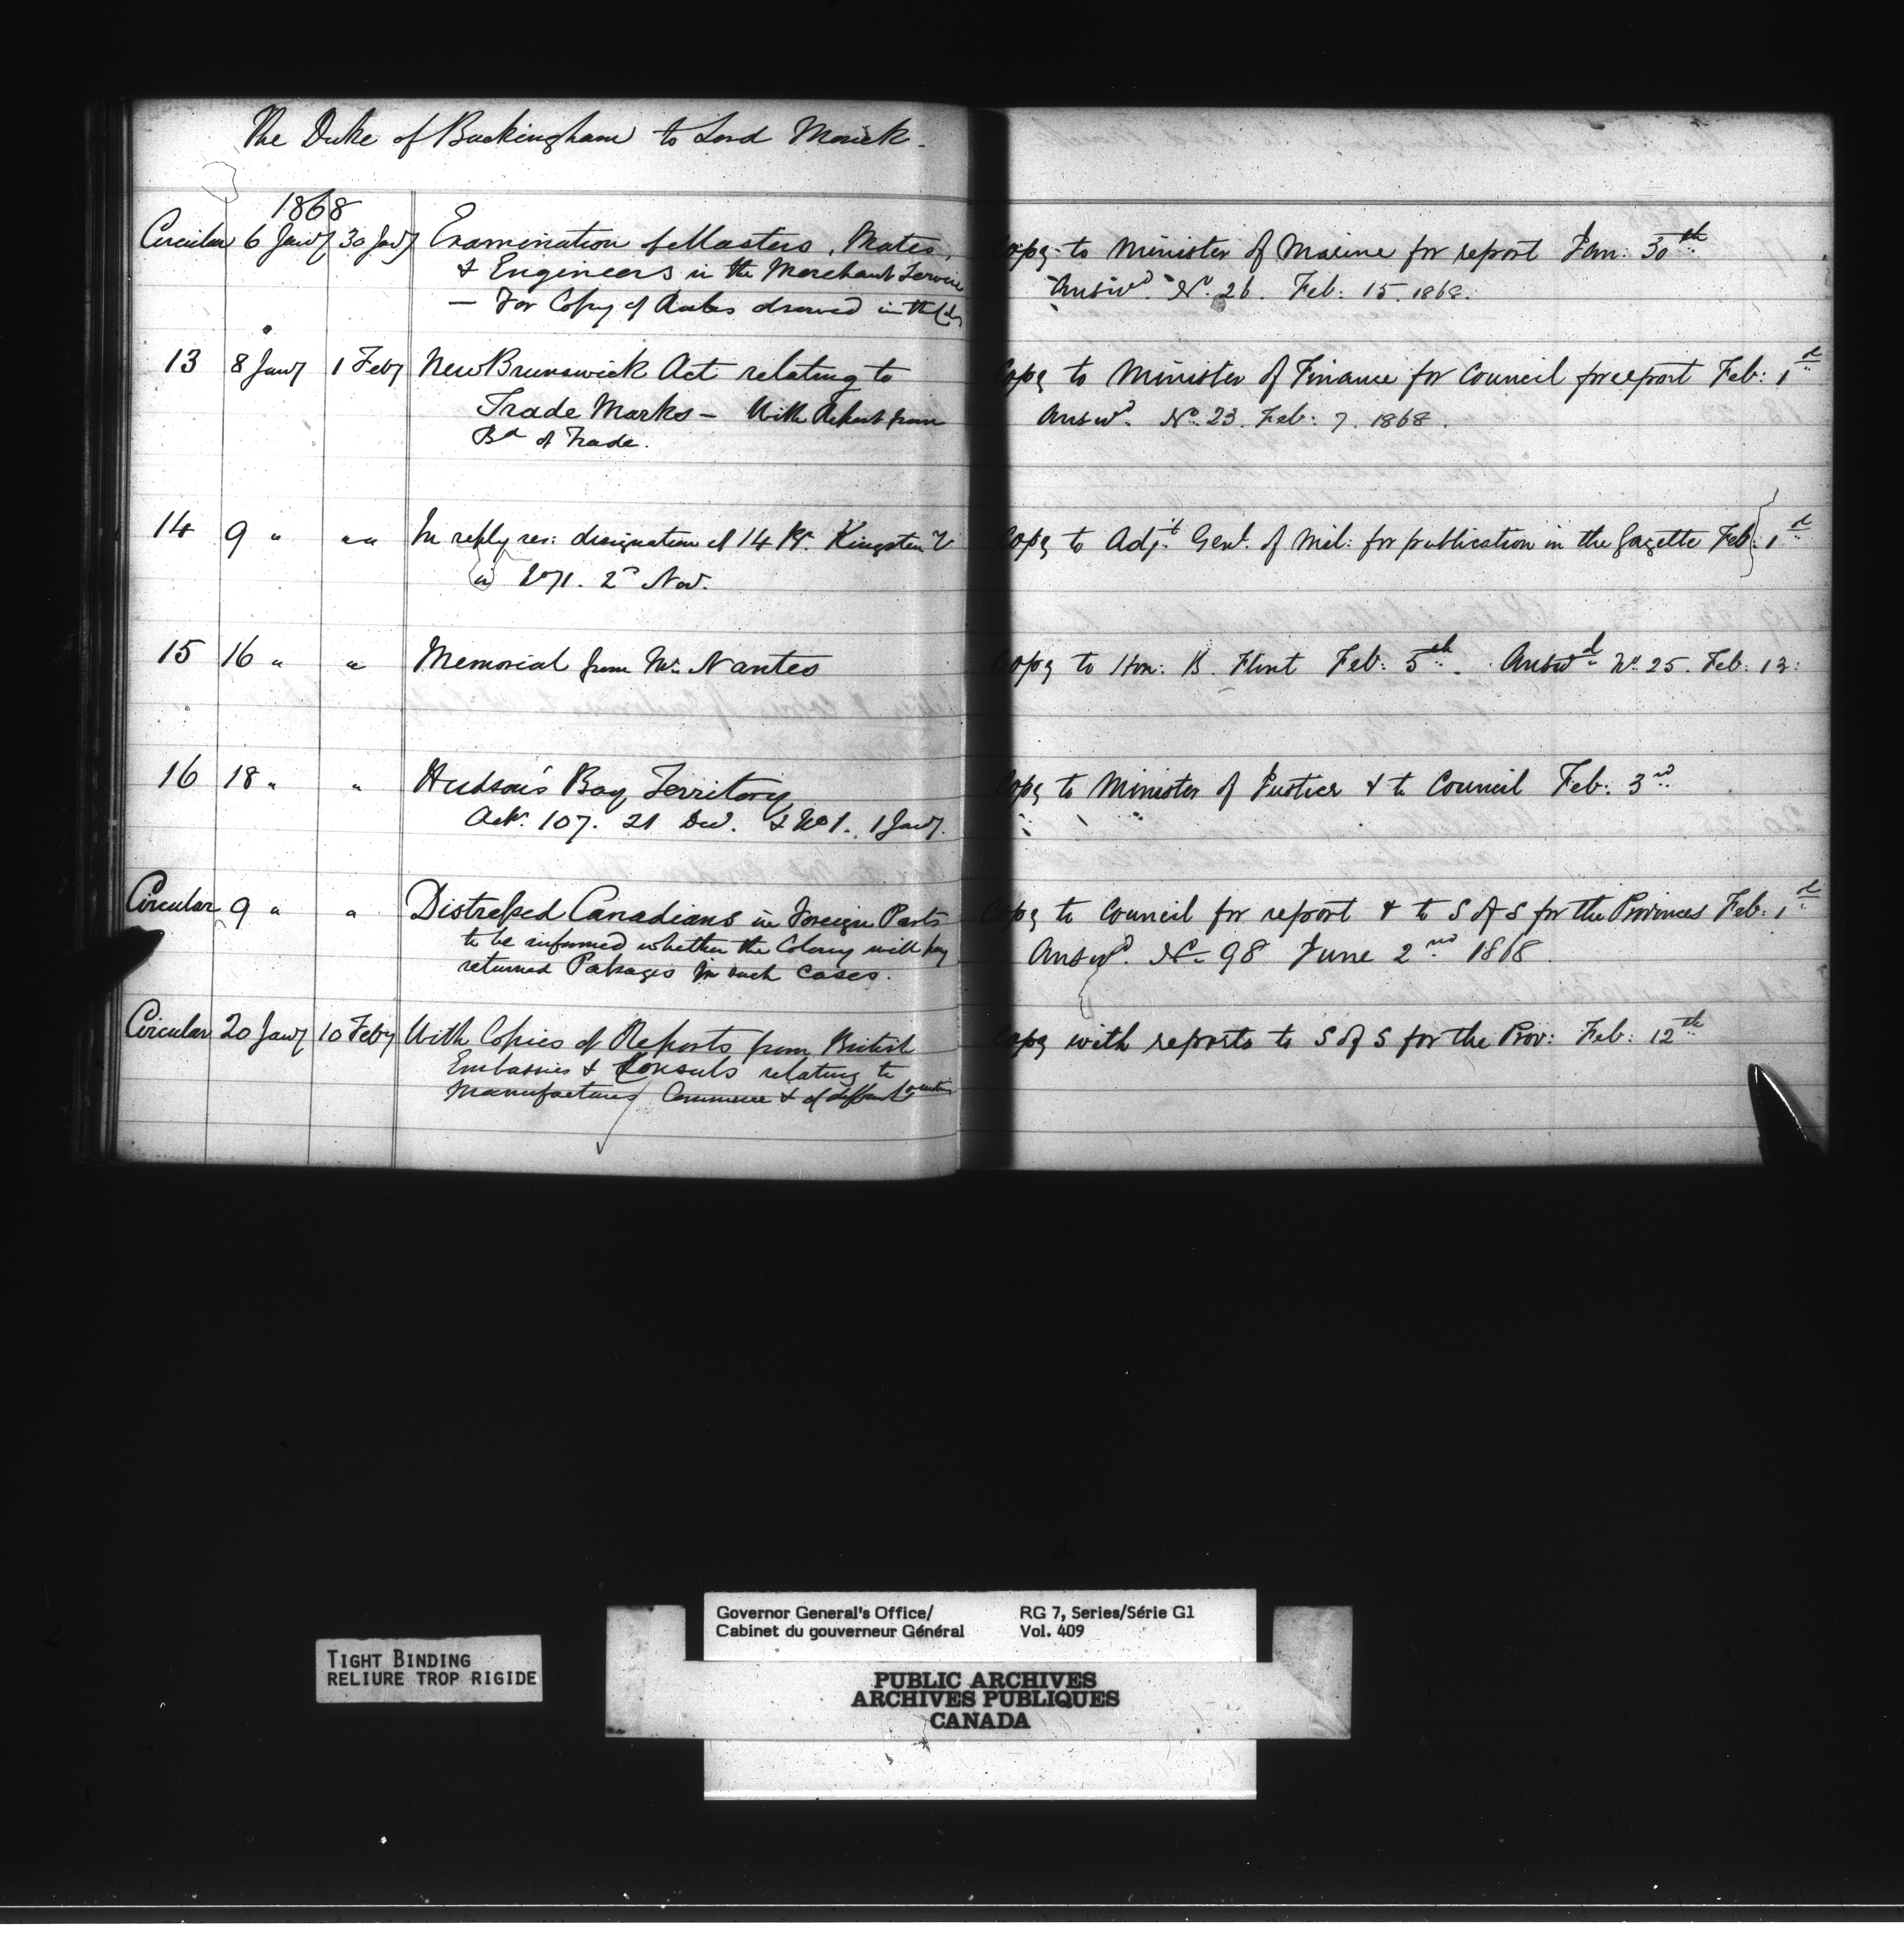 The Duke of Buckingham to Lord Monck.
1868
Circular 6 Jany 30 Jany Examination of Masters, Mates,
& Engineers in the Merchant Service
— For Copy of Rules drawed in the
Copy to Minister of Marine for report Jan: 30th
Answd. No. 26. Feb: 15. 1868.
13 8 Jany 1 Feby New Brunswick Act relating to
Trade Marks — With Report from
Bd of Trade.
Copy to Minister of Finance for Council for report Feb: 1st
Answd. No. 23. Feb: 7. 1868.
14 9 " " " In reply res: designation of 14 Kingston
2d Nov.
Copy to Adjt. Genl. of Mil: for publication in the Gazette Feb: 1st
15 16 " " Memorial from Mr. Nantes
Copy to Hon: B. Flint Feb: 5th. Answd No. 25. Feb: 13:
16 18 " " Hudson's Bay Territory
Ack. 107. 21 Dec. & No 1. 1 Jany.
Copy to Minister of Justice & to Council Feb: 3rd
Circular 9 " " Distressed Canadians in Foreign Parts
to be informed whether the Colony will pay
returned Passages in such cases.
Copy to Council for report & to S of S for the Provinces Feb: 1st
Answd. No. 98 June 2nd 1868.
Circular 20 Jany 10 Feby With Copies of Reports from British
Embassies & Consuls relating to
Manufactures Commerce & of different Countries
Copy with reports to S of S for the Prov: Feb: 12th
Governor General's Office/
Cabinet du gouverneur Général
RG 7, Series/Série G1
Vol. 409
TIGHT BINDING
RELIURE TROP RIGIDE
PUBLIC ARCHIVES
ARCHIVES PUBLIQUES
CANADA